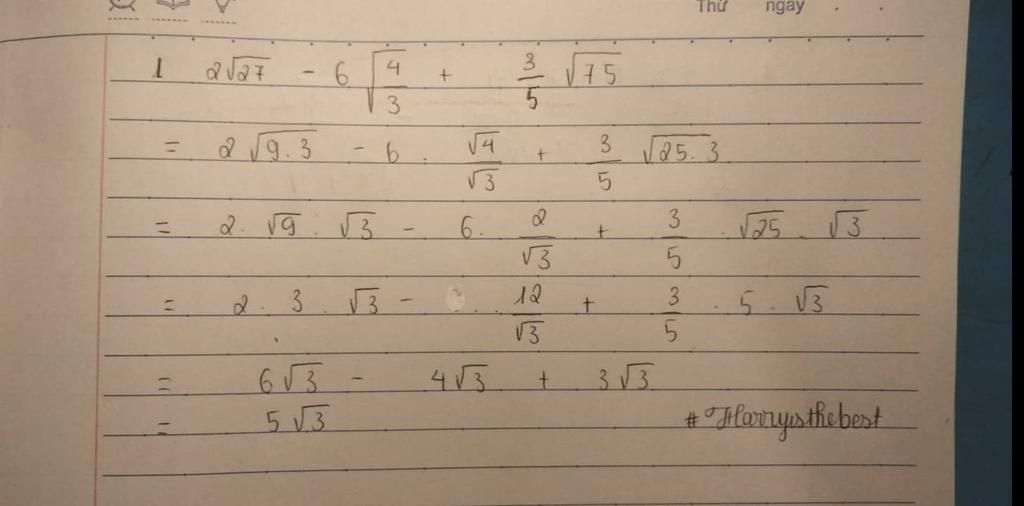 Thứ ngày . .
1 2√27 - 6 √(4/3) + 3/5 √75
= 2 √(9.3) - 6 . √4/√3 + 3/5 √(25.3)
= 2 . √9 . √3 - 6 . 2/√3 + 3/5 . √25 . √3
= 2 . 3 . √3 - 12/√3 + 3/5 . 5 . √3
= 6√3 - 4√3 + 3√3
= 5√3 #Harryisthebest